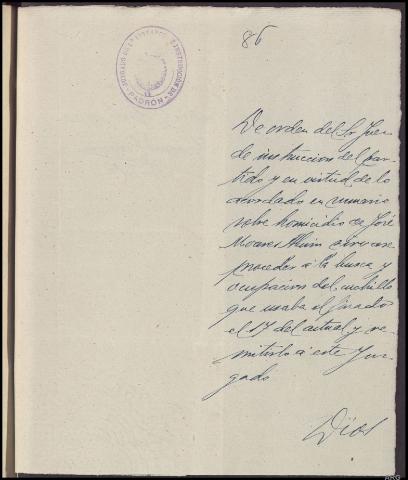 86
JUZGADO DE 1ª INSTANCIA E INSTRUCCIÓN DE
PADRÓN
De orden del Sr Juez
de instruccion del par-
tido y en virtud de lo
acordado en sumario
sobre homicidio de José
Moares sirvase
proceder á la busca y
ocupacion del cuchillo
que usaba el finado
el 17 del actual y re-
mitirlo á este Juz-
gado
Dios
ARG